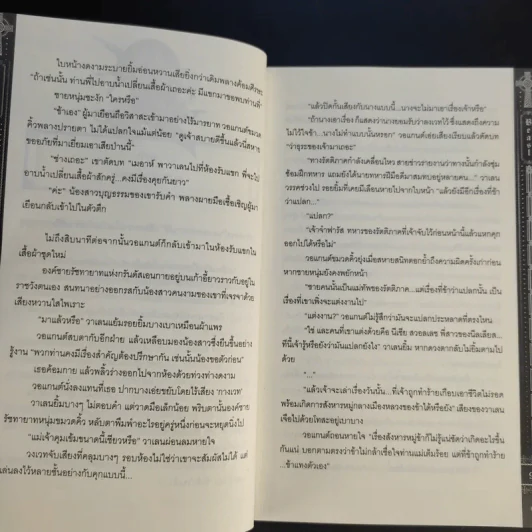 ใบหน้างดงามระบายยิ้มอ่อนหวานเสียยิ่งกว่าเดิมพลางค้อมศีรษะ
"ถ้าเช่นนั้น ท่านพี่ไปอาบน้ำเปลี่ยนเสื้อผ้าเถอะค่ะ มีแขกมาขอพบท่านพี่"
ชายหนุ่มชะงัก "ใครหรือ"
"ข้าเอง" ผู้มาเยือนถือวิสาสะเข้ามาอย่างไร้มารยาท วอแกนต์ขมวด
คิ้วพลางปรายตา ไม่ได้แปลกใจแม้แต่น้อย "ดูเจ้าสบายดีขึ้นแล้วนี่
ขออภัยที่มาเยี่ยมเอาเสียป่านนี้"
"ช่างเถอะ" เขาตัดบท "เมอาห์ พาวาเลนไปที่ห้องรับแขก พี่จะไป
อาบน้ำเปลี่ยนเสื้อผ้าสักครู่...คงมีเรื่องคุยกันยาว"
"ค่ะ" น้องสาวบุญธรรมของเขารับคำ พลางผายมือเชื้อเชิญผู้มา
เยือนกลับเข้าไปในตัวตึก
ไม่ถึงสิบนาทีต่อจากนั้นวอแกนต์ก็กลับเข้ามาในห้องรับแขกใน
เสื้อผ้าชุดใหม่
องค์ชายรัชทายาทแห่งกรันดัสเอนกายอยู่บนเก้าอี้ยาวราวกับอยู่ใน
ราชวังตนเอง สนทนาอย่างออกรสกับน้องสาวคนงามของเขาที่เจรจาด้วย
เสียงหวานใสไพเราะ
"มาแล้วหรือ" วาเลนแย้มรอยยิ้มบางเบาเหมือนผ้าแพร
วอแกนต์สบตากับอีกฝ่าย แล้วเหลือบมองน้องสาวซึ่งยืนขึ้นอย่าง
รู้งาน "พวกท่านคงมีเรื่องสำคัญต้องปรึกษากัน เช่นนั้นน้องขอตัวก่อน"
เธอค้อมกาย แล้วพลิ้วร่างออกไปจากห้องด้วยท่วงท่างดงาม
วอแกนต์นั่งลงแทนที่เธอ ปากบางเอ่ยขยับโดยไร้เสียง 'กางเวท'
วาเลนยิ้มบางๆ ไม่ตอบคำ แต่วาดมือเล็กน้อย พริบตานั้นองค์ชาย
รัชทายาทหนุ่มขมวดคิ้ว หลับตาพึมพำอะไรอยู่ครู่หนึ่งก่อนจะหยุดนิ่งไป
"แม่เจ้าคุมเข้มขนาดนี้เชียวหรือ" วาเลนผ่อนลมหายใจ
วงเวทจับเสียงที่คลุมบางๆ รอบห้องไม่ใช่ว่าเขาจะสัมผัสไม่ได้ แต่
เล่นลงไว้หลายชั้นอย่างกับคุกแบบนี้...
"แล้วปิดกั้นเสียงกับนางแบบนี้...นางจะไม่มาเอาเรื่องเจ้าหรือ"
"ถ้านางเอาเรื่อง ก็แสดงว่านางยอมรับว่าลงเวทไว้ซึ่งแสดงถึงความ
ไม่ไว้ใจข้า...นางไม่ทำแบบนั้นหรอก" วอแกนต์เอ่ยเสียงเรียบแล้วตัดบท
"ว่าธุระของเจ้ามาเถอะ"
"ทางรัตติกาลกำลังเคลื่อนไหว สายข่าวรายงานว่าทางนั้นกำลังซุ่ม
ซ้อมฝึกทหาร แถมยังได้นายทหารฝีมือดีมาสมทบอยู่หลายคน..." วาเลน
วรรคช่วงไป รอยยิ้มที่เคยมีเลือนหายไปจากใบหน้า "แล้วยังมีอีกเรื่องที่ข้า
ว่าแปลก..."
"แปลก?"
"เจ้าจำฟารัส ทหารของรัตติกาลที่เจ้าจับไว้ก่อนหน้านี้แล้วแหกคุก
ออกไปได้หรือไม่"
วอแกนต์ขมวดคิ้วยุ่งเมื่อสหายสนิทตอกย้ำถึงความผิดครั้งเก่าก่อน
หากชายหนุ่มยังคงพยักหน้า
"ชายคนนั้นเป็นแม่ทัพของรัตติกาล...แต่เรื่องที่ข้าว่าแปลกนั้น เป็น
เรื่องที่เขาเพิ่งจะแต่งงานไป"
"แต่งงาน?" วอแกนต์ไม่รู้สึกว่ามันจะแปลกประหลาดที่ตรงไหน
"ใช่ และคนที่เขาแต่งด้วยคือ นีเซีย สวอลเลช พี่สาวของนีลเลีย...
ทีนี้เจ้ารู้หรือยังว่ามันแปลกยังไง" วาเลนยิ้ม หากดวงตากลับไม่ยิ้มตามไป
ด้วย
"..."
"แล้วเจ้าจะเล่าเรื่องวันนั้น...ที่เจ้าถูกทำร้ายเกือบเอาชีวิตไม่รอด
พร้อมเกิดการสังหารหมู่กลางเมืองหลวงของข้าได้หรือยัง" เสียงของวาเลน
เจือไปด้วยโทสะอยู่เบาบาง
วอแกนต์ถอนหายใจ "เรื่องสังหารหมู่ข้าก็ไม่รู้แน่ชัดว่าเกิดอะไรขึ้น
กันแน่ บอกตามตรงว่าข้าไม่กล้าเชื่อใจท่านแม่เต็มร้อย แต่ที่ข้าถูกทำร้าย
...ข้าแทงตัวเอง"